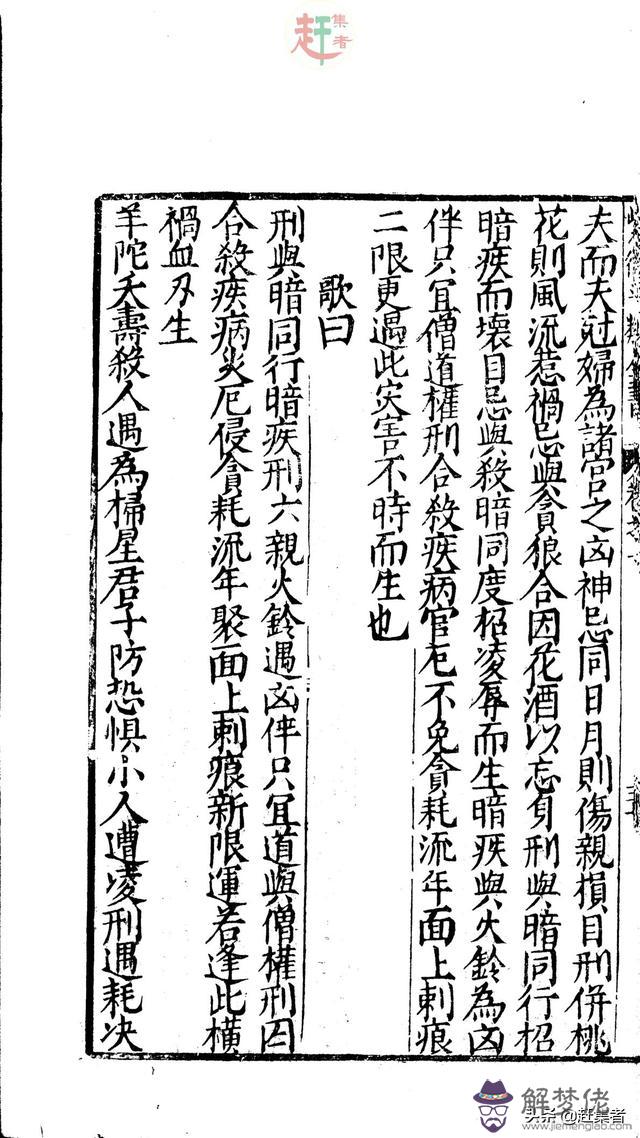 赶集者
夫而夫尅婦為諸宮之凶神忌同日月則傷親損目刑併桃
花則風流惹禍忌與貪狼合因花酒以忘身刑與暗同行招
暗疾而壞目忌與殺暗同度招凌辱而生暗疾與火鈴為凶
伴只宜僧道權刑合殺疾病官厄不免貪耗流年面上刺痕
二限更遇此災害不時而生也
歌曰
刑與暗同行暗疾刑六親火鈴遇凶伴只宜道與僧權刑囚
合殺疾病災厄侵貪耗流年聚面上刺痕新限運若逢此橫
禍血刃生
羊陀夭壽殺人遇為掃星君子防恐惧小人遭凌刑遇耗决
解梦佬
www.jiemenglabo.com
头条@赶集者